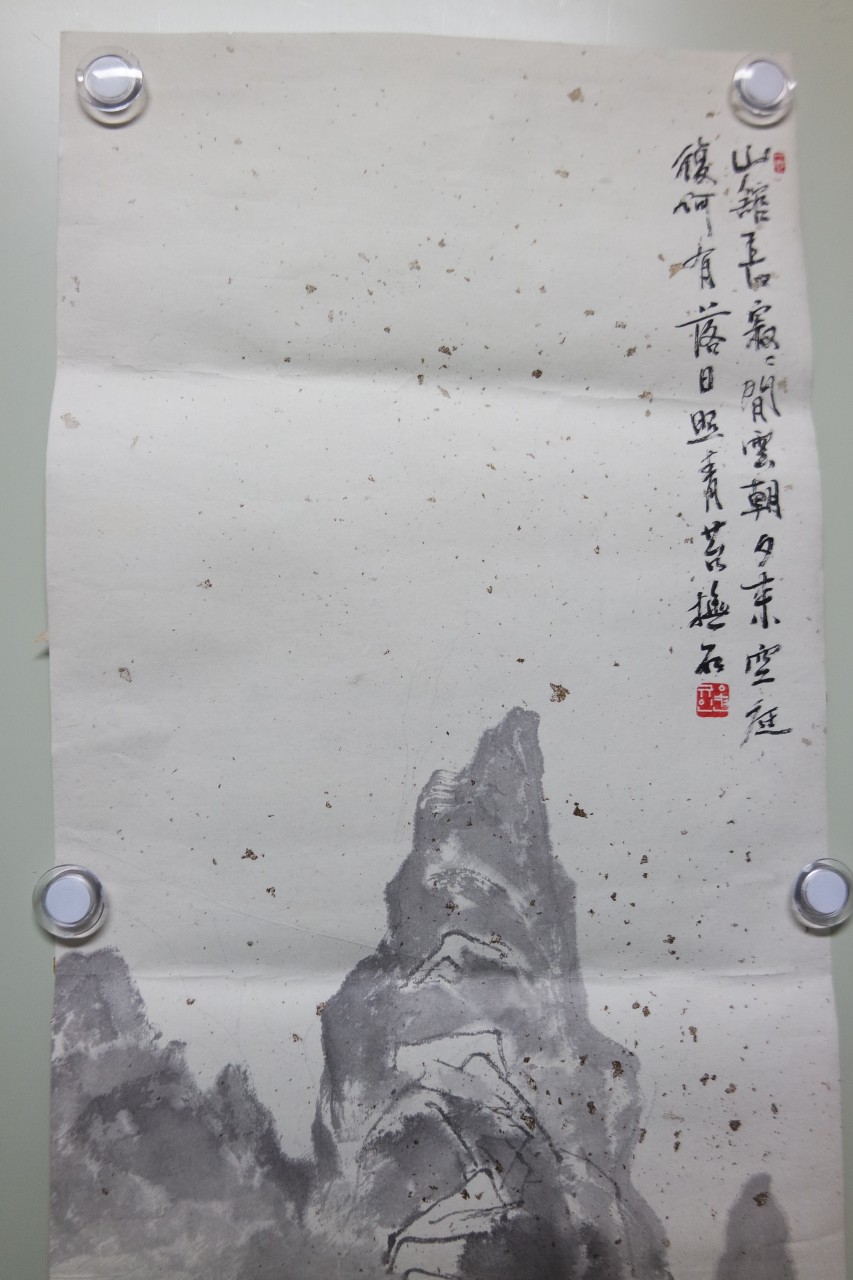 山舘長寂々閒雲朝夕來空庭
復何有落日照青苔撫石